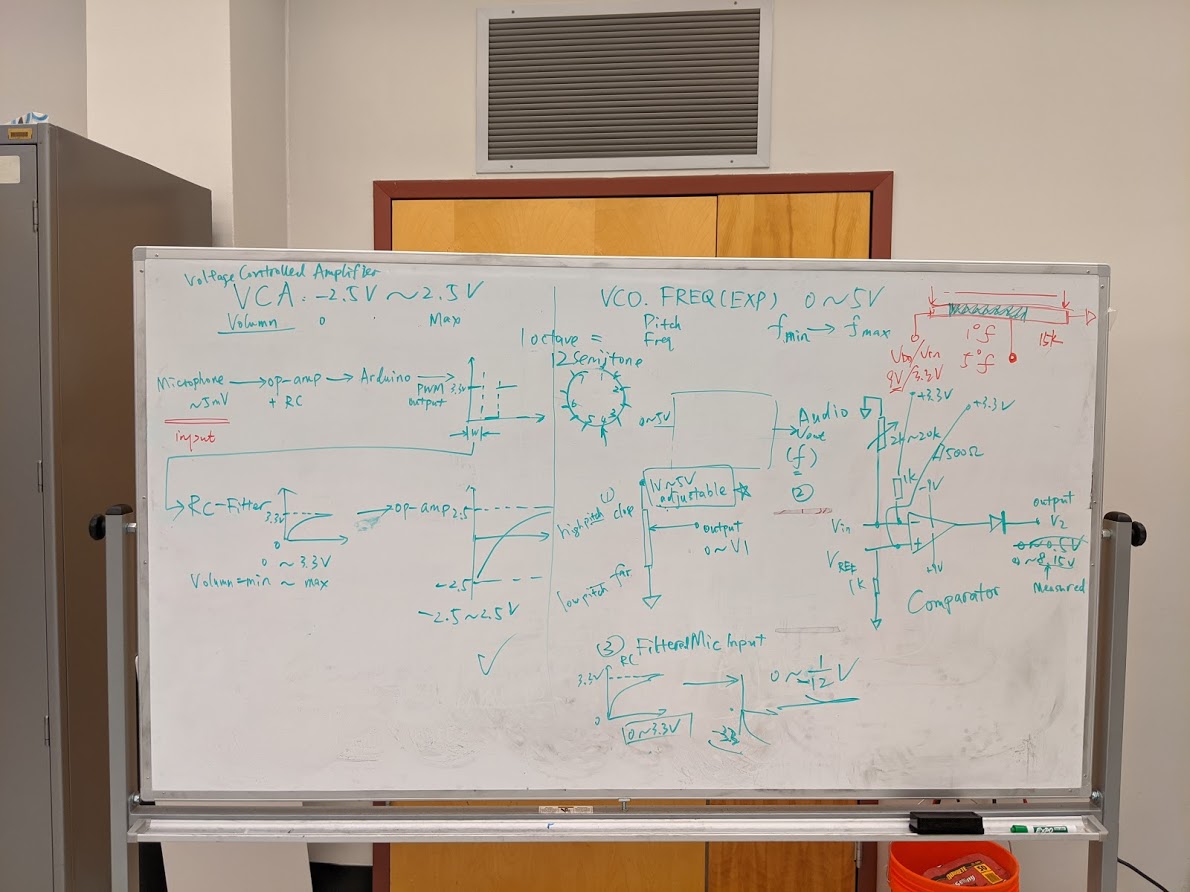 Voltage Controlled Amplifier
VCA: -2.5V ~ 2.5V
Volumn 0 Max
Microphone → op-amp → Arduino → PWM output
~5mV + RC
input
3.3v
W
RC-Filter
3.3v
0
0 ~ 3.3V
Volumn=min ~ max
op-amp
2.5
-2.5
-2.5 ~ 2.5V
VCO. FREQ(EXP) 0 ~ 5V
Pitch
Freq
fmin → fmax
1 octave =
12 semitone
0~5V
Audio
Vout
(f)
②
1V~5V
adjustable
① high pitch close
low pitch far
output
0 ~ V1
③ Filtered Mic Input
RC
3.3V
0
0~3.3V
-3.3
0 ~ 1/12 V
15k
9V/3.3V
+3.3V
+3.3V
2k~20k
1k
1500Ω
-9V
Vin
VREF
1k
+9V
output
V2
0 ~ 0.5V
0 ~ 8.15V
Measured
Comparator
EXPO